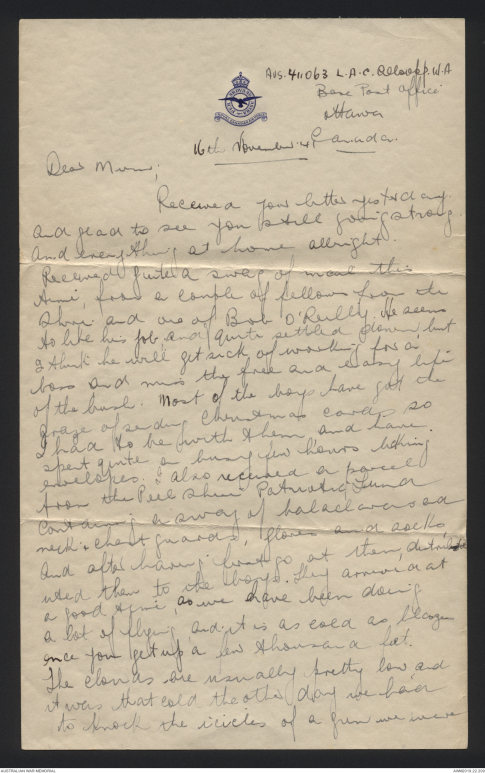 Aus. 411063 L.A.C. Allsopp. W.A
Base Post Office
Ottawa
Canada.
16th November 41
Dear Mum;
Received your letter yesterday.
and glad to see you still going strong.
And everything at home allright.
Received quite a swag of mail this
time, from a couple of fellows from the
Shire and one of Bob O'Reilly. He seems
to like his job, and quite settled down, but
I think he will get sick of working for a
boss and miss the free and easy life
of the bush. Most of the boys have got the
craze of sending Christmas cards, so
I had to be with them and have.
spent quite a busy few hours licking
envelopes. I also received a parcel
from the Peel Shire Patriotic Fund
containing a swag of balaclavas and
neck & chest guards, gloves and socks,
And after having first go at them, distrib
uted them to the boys. They arrived at
a good time, as we have been doing
a lot of flying and it is as cold as blazes
once you get up a few thousand feet.
The clouds are usually pretty low, and
it was that cold the other day we had
to knock the icicles of a gun we were
AUSTRALIAN WAR MEMORIAL